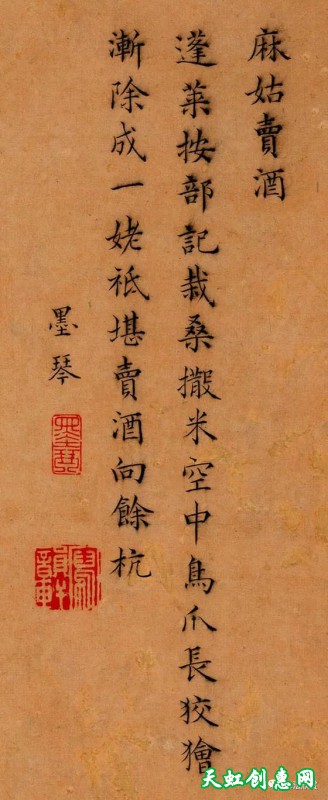 麻姑賣酒
蓬萊按部記栽桑撒米空中鳥爪長狡獪
漸除成一姥祗堪賣酒向餘杭
墨琴
天虹创意网